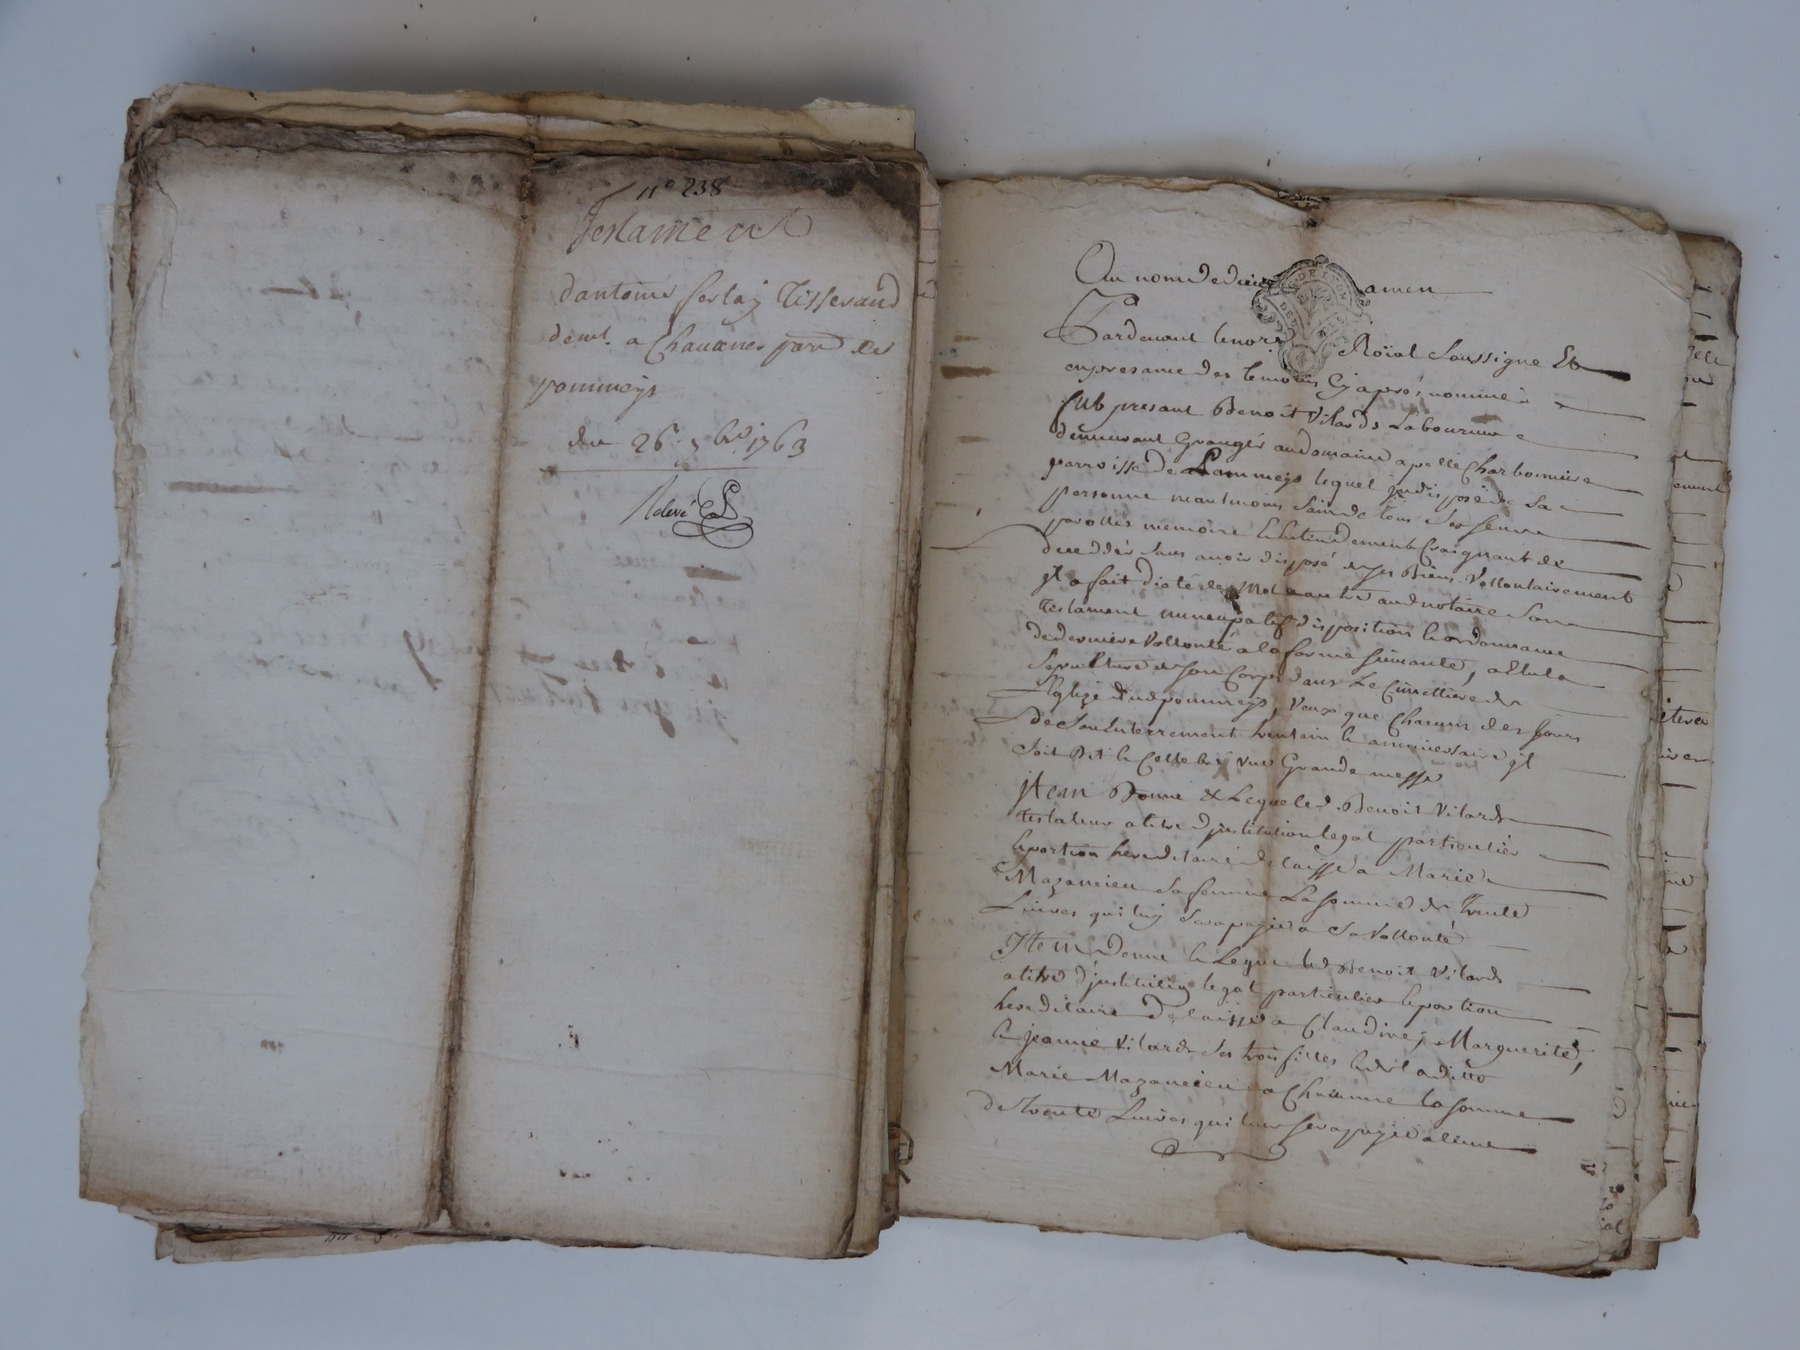 n° 238
Testament
dantoine ferlay Tisserand
demt. a Chavanes parr. de
pommeys
du 26e. 7bre. 1763
Au nom de dieu amen
Pardevant le nore. Roïal Soussigne Et
en presance des temoins Cy apres nommés
fut presant Benoît Vilards Laboureur
demeurant Granger au domaine apellé Charbonniere
parroisse de Pommeys lequel indisposé de sa
personne neantmoins sain de tous ses sens
parolles memoire & entendement Craignant de
decedder sans avoir disposé de ses Biens Vollontairement
jl a fait dicté de mot a autre aud notaire son
testament nuncupatif disposition & ordonnance
de derniere Vollonté a la forme suivante, a Elu la
Sepulture de son Corps dans Le Cimettiere de
Leglize dud pommeys, Veux que Chacuns des jours
de Son Enterrement trentain & anniversaire jl
soit Dit & Cellebré une Grande messe
jtem Donne & Legue led. Benoit Vilards
testateur a titre djnstitution legat particulier
& portion hereditaire delaissé a Marie
Mazancieu sa femme La somme de trente
Livres qui luy sera payée a sa Vollonté
Jtem Donne & Legue led Benoit Vilards
a titre d'jnstitution legat particulier & portion
hereditaire delaissée a Claudine, Marguerite,
& jeanne Vilards ses trois filles & de lad
Marie Mazancieu a Chacunne la somme
de trente Livres qui leur sera payée aleur